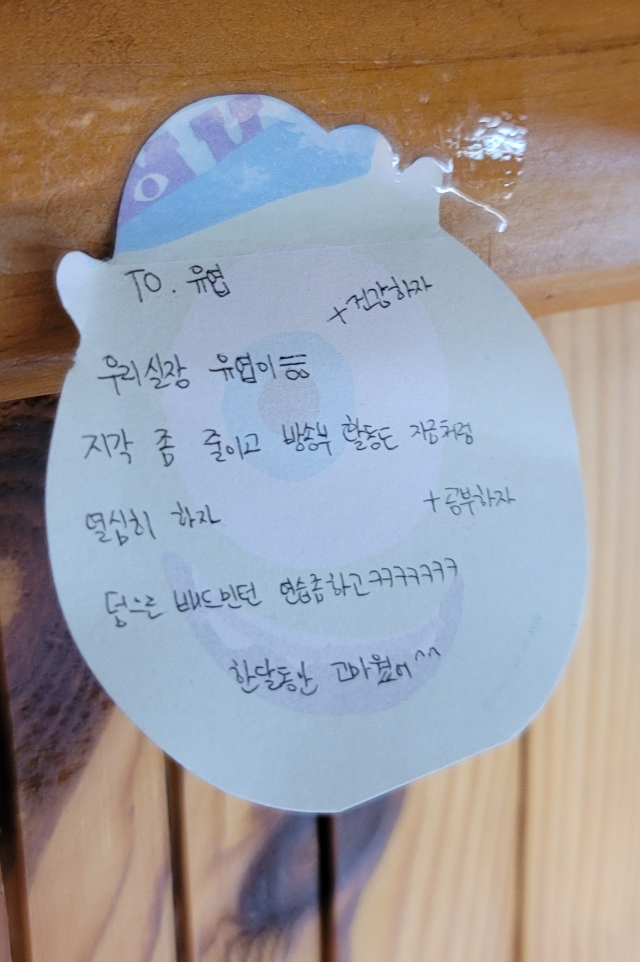 TO. 유엽
+건강하자
우리실장 유엽이
지각 좀 줄이고 방송부 활동도 지금처럼
열심히 하자
+공부하자
배드민턴 연습좀하고ㅋㅋㅋㅋㅋㅋㅋ
한달동안 고마웠어^^